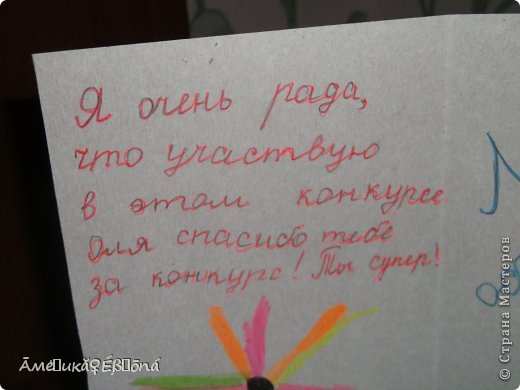 Я очень рада,
что участвую
в этом конкурсе
Оля спасибо тебе
за конкурс! Ты супер!
© Страна Мастеров